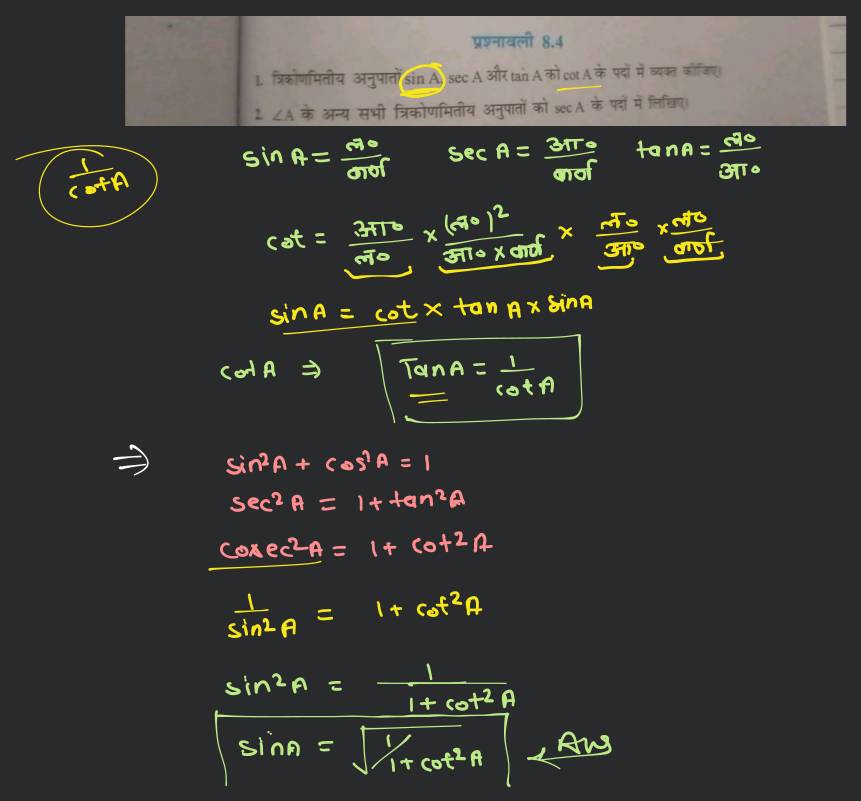 प्रश्नावली 8.4
1. त्रिकोणमितीय अनुपातों sin A, sec A और tan A को cot A के पदों में व्यक्त कीजिए।
2. ∠A के अन्य सभी त्रिकोणमितीय अनुपातों को sec A के पदों में लिखिए।
1/cotA
sin A = ल०/कर्ण sec A = आ०/कर्ण tanA = ल०/आ०
cot = आ०/ल० × (ल०)²/आ० × कर्ण × ल०/आ० × ल०/कर्ण
sin A = cot × tan A × sinA
cot A ⇒ TanA = 1/cotA
⇒ sin²A + cos²A = 1
sec²A = 1 + tan²A
cosec²A = 1 + cot²A
1/sin²A = 1 + cot²A
sin²A = 1/1 + cot²A
sinA = √1/1 + cot²A Ans